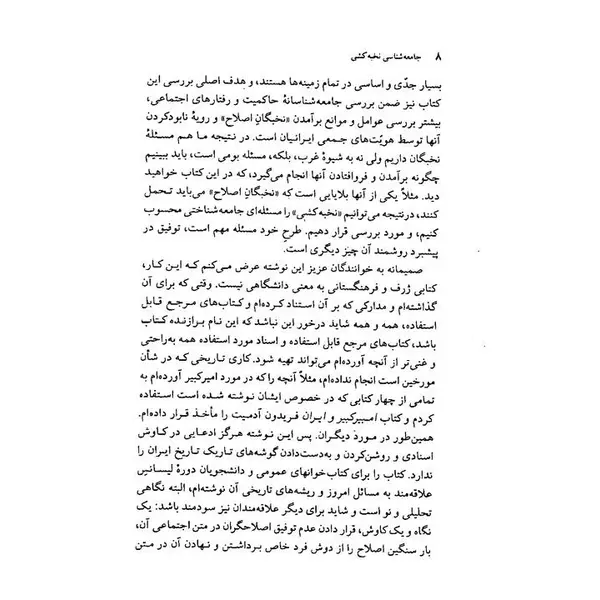 ۸ جامعه‌شناسی نخبه‌کشی
بسیار جدّی و اساسی در تمام زمینه‌ها هستند، و هدف اصلی بررسی این
کتاب نیز ضمن بررسی جامعه‌شناسانهٔ حاکمیت و رفتارهای اجتماعی،
بیشتر بررسی عوامل و موانع برآمدن «نخبگانِ اصلاح» و رویهٔ نابودکردن
آنها توسط هویّت‌های جمعی ایرانیان است. در نتیجه ما هم مسئلهٔ
نخبگان داریم ولی نه به شیوهٔ غرب، بلکه، مسئله بومی است، باید ببینیم
چگونه برآمدن و فروافتادن آنها انجام می‌گیرد، که در این کتاب خواهید
دید. مثلاً یکی از آنها بلایایی است که «نخبگانِ اصلاح» می‌باید تحمل
کنند، درنتیجه می‌توانیم «نخبه‌کشی» را مسئله‌ای جامعه‌شناختی محسوب
کنیم، و مورد بررسی قرار دهیم. طرحِ خود مسئله مهم است، توفیق در
پیشبرد روشمند آن چیز دیگری است.
صمیمانه به خوانندگان عزیز این نوشته عرض می‌کنم که این کار،
کتابی ژرف و فرهنگستانی به معنی دانشگاهی نیست. وقتی که برای آن
گذاشته‌ام و مدارکی که بر آن استناد کرده‌ام و کتاب‌های مرجع قابل
استفاده، همه و همه شاید درخور این نباشد که این نام برازنده کتاب
باشد، کتاب‌های مرجع قابل استفاده و اسناد مورد استفاده همه به‌راحتی
و غنی‌تر از آنچه آورده‌ام می‌تواند تهیه شود. کاری تاریخی که در شأن
مورخین است انجام نداده‌ام، مثلاً آنچه را که در مورد امیرکبیر آورده‌ام به
تمامی از چهار کتابی که در خصوص ایشان نوشته شده است استفاده
کردم و کتاب امیرکبیر و ایران فریدون آدمیت را مأخذ قرار داده‌ام.
همین‌طور در موردِ دیگران. پس این نوشته هرگز ادعایی در کاوش
اسنادی و روشن‌کردن و به‌دست‌دادن گوشه‌های تاریک تاریخ ایران را
ندارد. کتاب را برای کتاب‌خوانهای عمومی و دانشجویان دورهٔ لیسانس
علاقه‌مند به مسائل امروز و ریشه‌های تاریخی آن نوشته‌ام، البته نگاهی
تحلیلی و نو است و شاید برای دیگر علاقه‌مندان نیز سودمند باشد: یک
نگاه و یک کاوش، قرار دادن عدم توفیق اصلاحگران در متن اجتماعی آن،
بار سنگین اصلاح را از دوش فرد خاص برداشتن و نهادن آن در متن